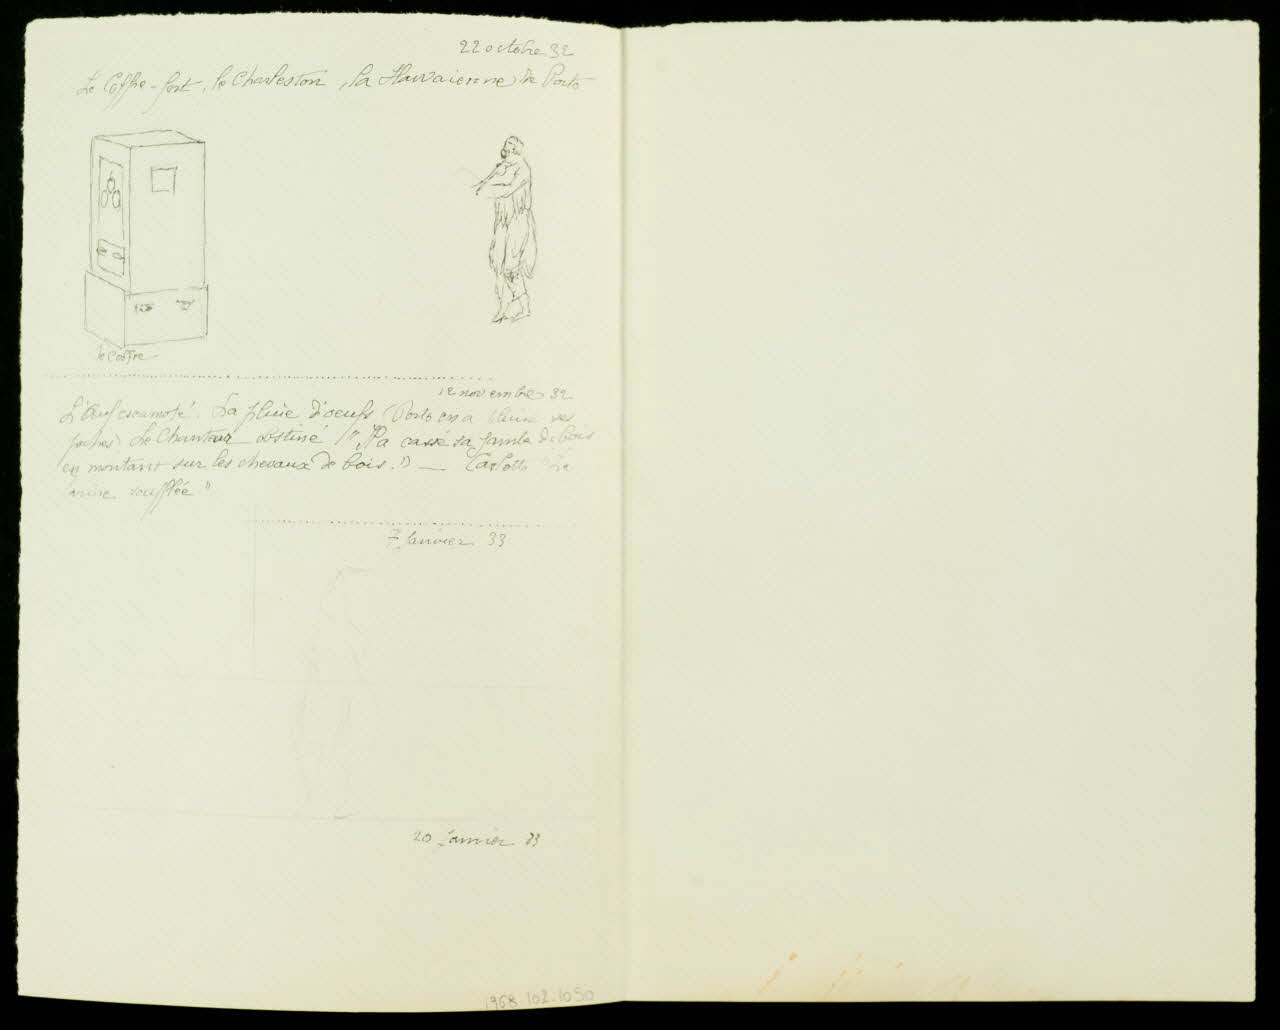 22 octobre 32
Le Coffre-fort, le Charleston, la Hawaienne de Porto
le Coffre
12 novembre 32
L'Œuf escamoté. La pluie d'oeufs (Porto en a plein ses
poches) Le Chanteur obstiné ("Il a cassé sa jambe de bois
en montant sur les chevaux de bois.") — Carlotto "La
souflée"
7 Janvier 33
20 Janvier 33
1968.102.1050